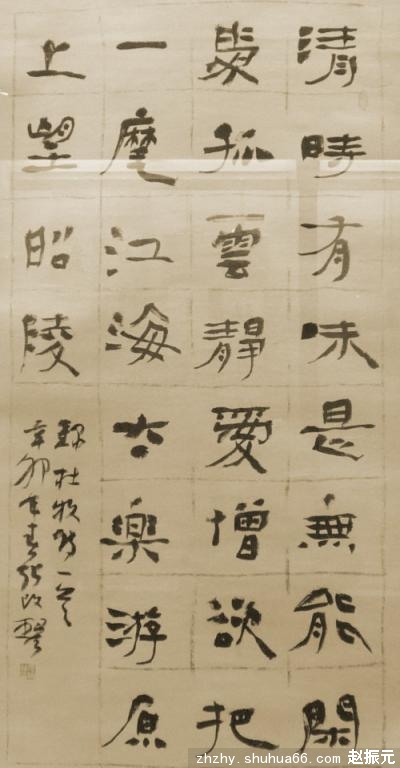 清時有味是無能閑
愛孤雲靜愛憎欲把
一麾江海去樂游原
上望昭陵
録杜牧詩一首
辛卯年春張改琴
zhzhy.shuhua66.com 赵振元